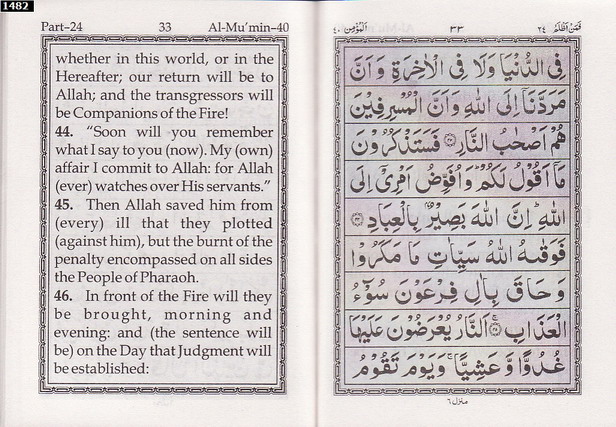 1482
Part–24 33 Al-Mu’min–40
whether in this world, or in the
Hereafter; our return will be to
Allah; and the transgressors will
be Companions of the Fire!
44. “Soon will you remember
what I say to you (now). My (own)
affair I commit to Allah: for Allah
(ever) watches over His servants.”
45. Then Allah saved him from
(every) ill that they plotted
(against him), but the burnt of the
penalty encompassed on all sides
the People of Pharaoh.
46. In front of the Fire will they
be brought, morning and
evening: and (the sentence will
be) on the Day that Judgment will
be established:
اَلْمُؤْمِن ٤٠ ٣٣ فَمَنْ اَظْلَمُ ٢٤
فِى الدُّنْيَا وَلَا فِى الْاٰخِرَةِ وَ اَنَّ
مَرَدَّنَاۤ اِلَى اللّٰهِ وَاَنَّ الْمُسْرِفِيْنَ
هُمْ اَصْحٰبُ النَّارِ ﴿٤٣﴾ فَسَتَذْكُرُوْنَ
مَاۤ اَقُوْلُ لَكُمْ ؕ وَ اُفَوِّضُ اَمْرِىْۤ اِلَى
اللّٰهِ ؕ اِنَّ اللّٰهَ بَصِيْرٌۢ بِالْعِبَادِ ﴿٤٤﴾
فَوَقٰىهُ اللّٰهُ سَيِّاٰتِ مَا مَكَرُوْا
وَ حَاقَ بِاٰلِ فِرْعَوْنَ سُوْٓءُ
الْعَذَابِ ﴿٤٥﴾ۚ اَلنَّارُ يُعْرَضُوْنَ عَلَيْهَا
غُدُوًّا وَّ عَشِيًّا ۚ وَيَوْمَ تَقُوْمُ
منزل ٦